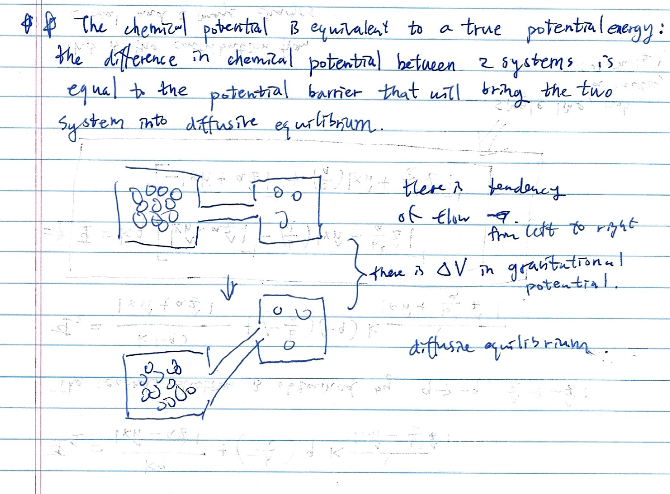 The chemical potential is equivalent to a true potential energy:
the difference in chemical potential between 2 systems is
equal to the potential barrier that will bring the two
system into diffusive equilibrium.
there is tendency
of flow
from left to right
there is ΔV in gravitational
potential.
diffusive equilibrium.